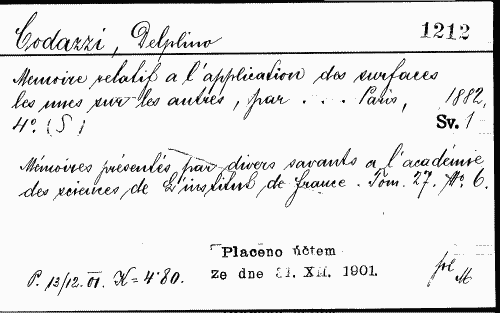 Codazzi, Delphino
1212
Memoire relatif a l'application des surfaces
les unes sur les autres, par . . . Paris, 1882,
4°. (S)
Sv. 1
Mémoires présentés par divers savants a l'académie
des sciences de l'institut de france. Tom. 27. No. 6.
Placeno účtem
P. 13/12. 01. K = 4.80.
Ze dne 31. XII. 1901.